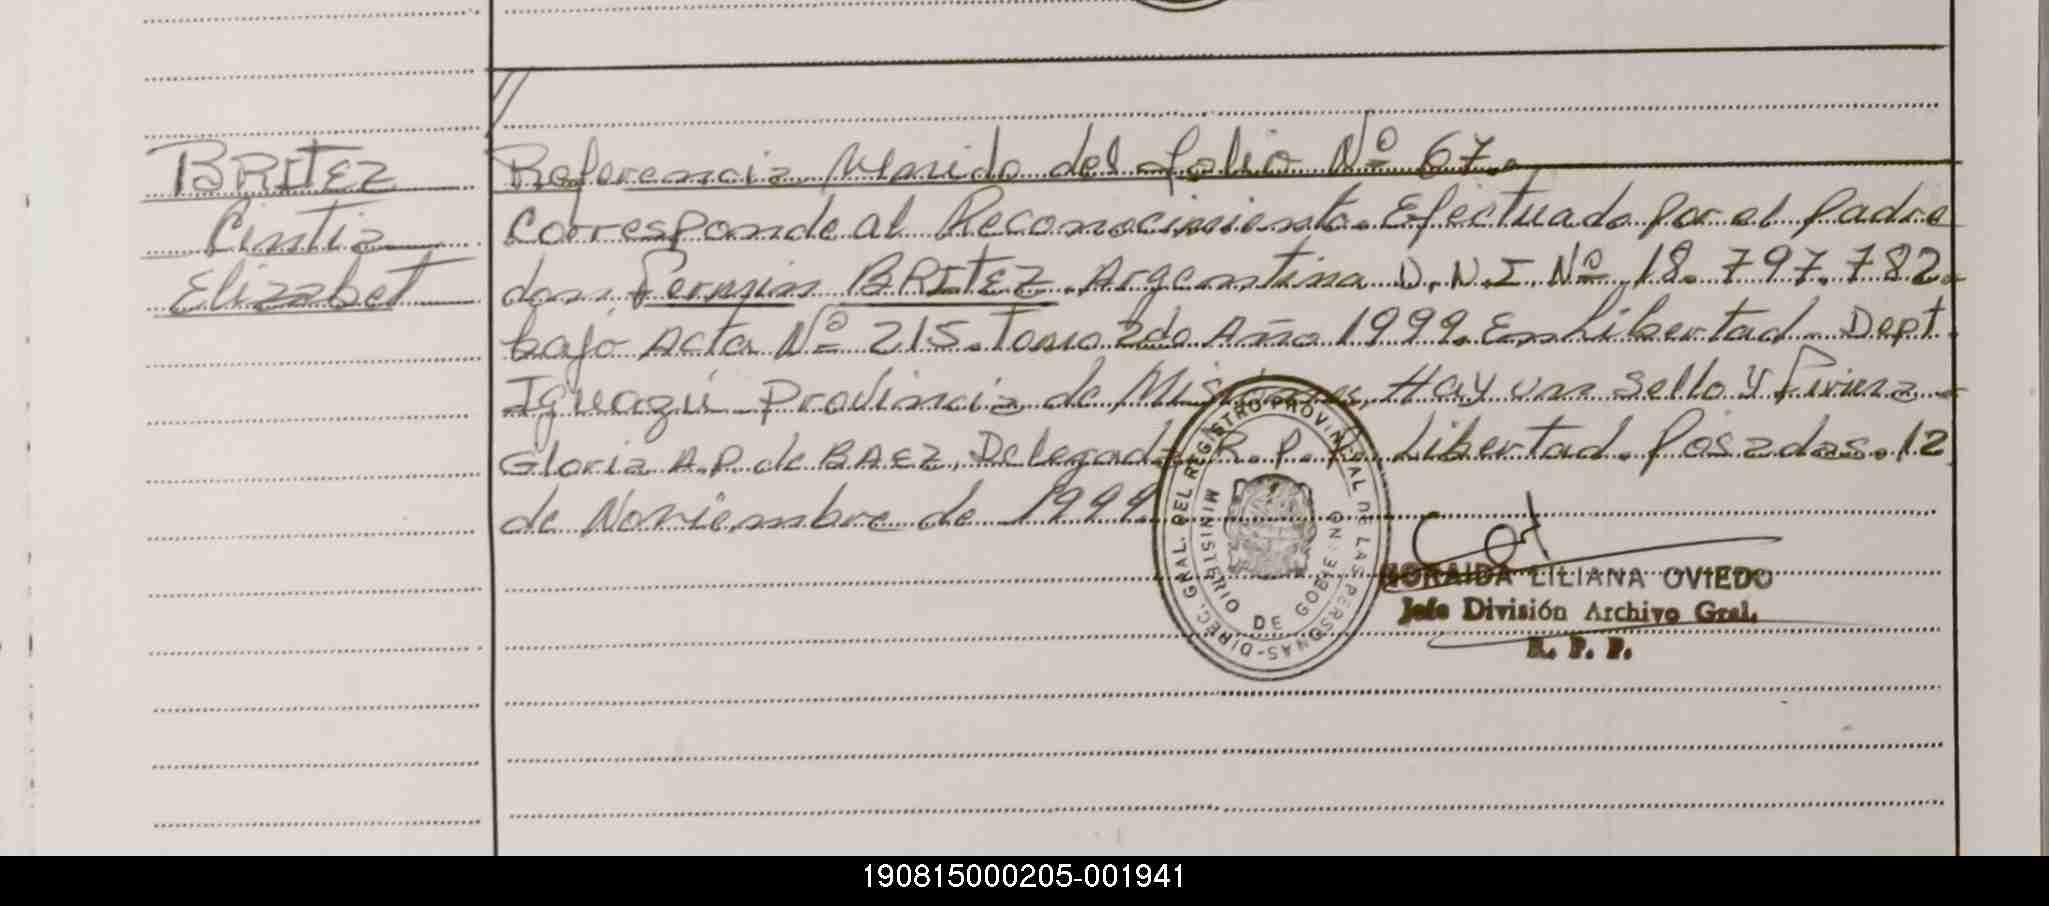 BRITEZ
Cintia
Elizabet
Referencia Unido del folio Nº 67.
Corresponde al Reconocimiento. Efectuado por el padre
don: Fermin BRITEZ. Argentina D.N.I. Nº 18.797.782.
bajo Acta Nº 215. Tomo 2do Año 1999. En Libertad. Dept.
Iguazú Provincia de Misiones, Hay un sello y firma
Gloria A.P. de BAEZ, Delegada R.P.P. Libertad. Posadas. 12
de Noviembre de 1999
DIREC. GRAL. DEL REGISTRO PROVINCIAL DE LAS PERSONAS
MINISTERIO DE GOBIERNO
ZORAIDA LILIANA OVIEDO
Jefe División Archivo Gral.
R. P. P.
190815000205-001941